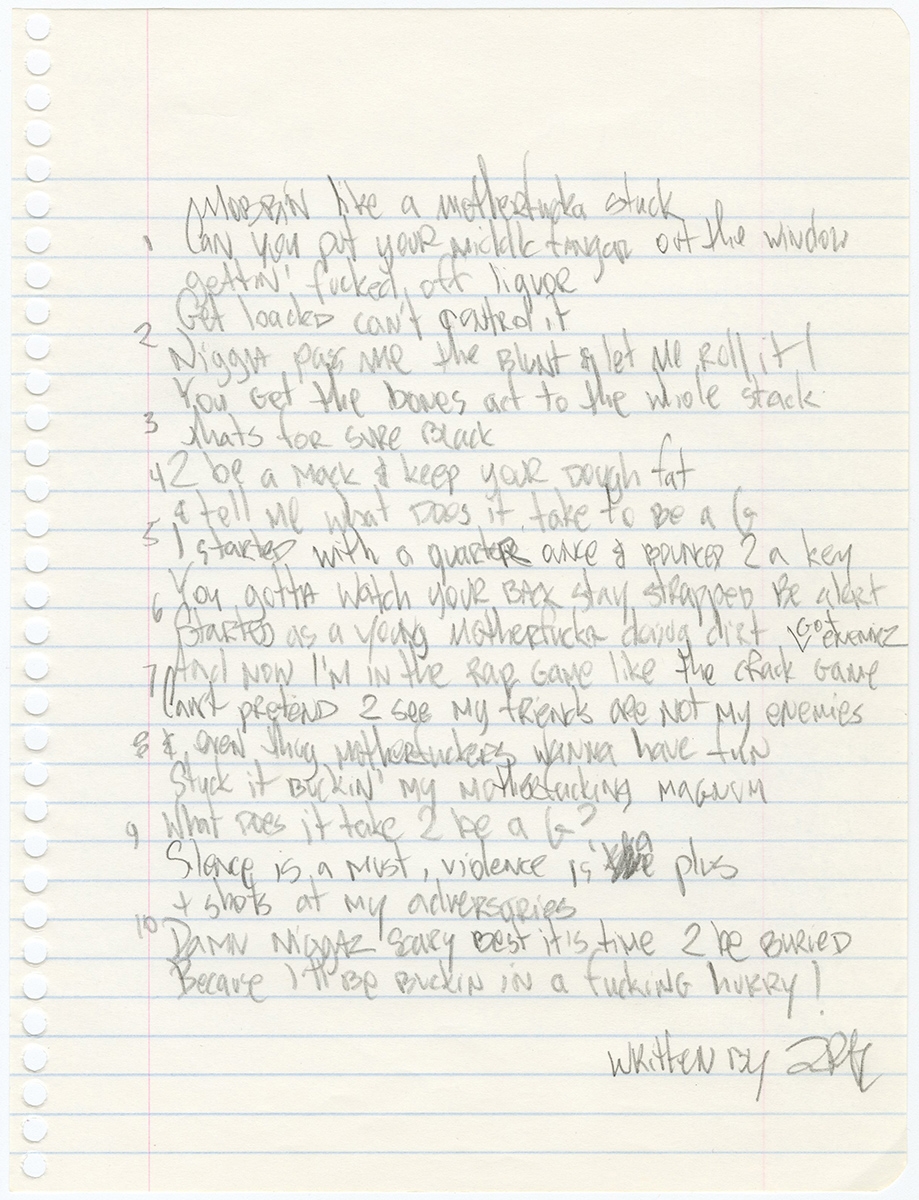 Mobbin like a motherfucka stuck
1 Can you put your middle fingar out the window
gettin' fucked off liquor
Get loaded can't control it
2 Nigga pass me the blunt & let me roll it!
You get the bones act to the whole stack
3 thats for sure Black
4 2 be a mack & keep your dough fat
& tell me what does it take to be a G
5 I started with a quarter ounce & bounced 2 a key
You gotta watch your back stay strapped be alert
6 Started as a young motherfucka doing dirt Got enemiez
7 And now I'm in the rap game like the crack game
Can't pretend 2 see my friends are not my enemies
8 & even thug motherfuckers wanna have fun
Stuck it buckin' my motherfucking magnum
9 What does it take 2 be a G?
Silence is a must, violence is a plus
+ shots at my adversaries
10 Damn niggaz scary best it is time 2 be buried
Because I'll be buckin in a fucking hurry!
written by